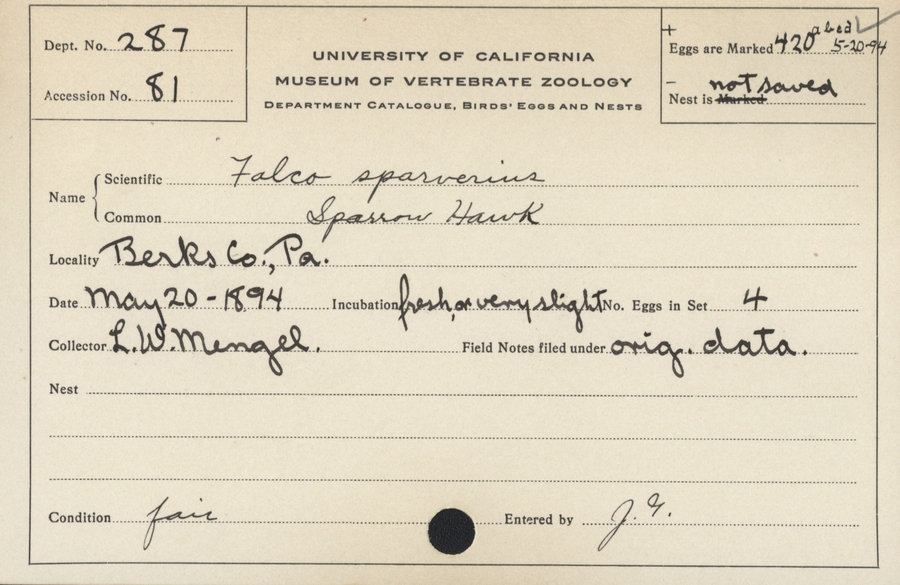 Dept. No. 287
Accession No. 81
UNIVERSITY OF CALIFORNIA
MUSEUM OF VERTEBRATE ZOOLOGY
DEPARTMENT CATALOGUE, BIRDS' EGGS AND NESTS
+
Eggs are Marked 420 abcd 5-20-94
– not saved
Nest is Marked
Name
Scientific Falco sparverius
Common Sparrow Hawk
Locality Berks Co., Pa.
Date May 20 - 1894 Incubation fresh, or very slight No. Eggs in Set 4
Collector L. W. Mengel. Field Notes filed under orig. data.
Nest
Condition fair Entered by J. G.